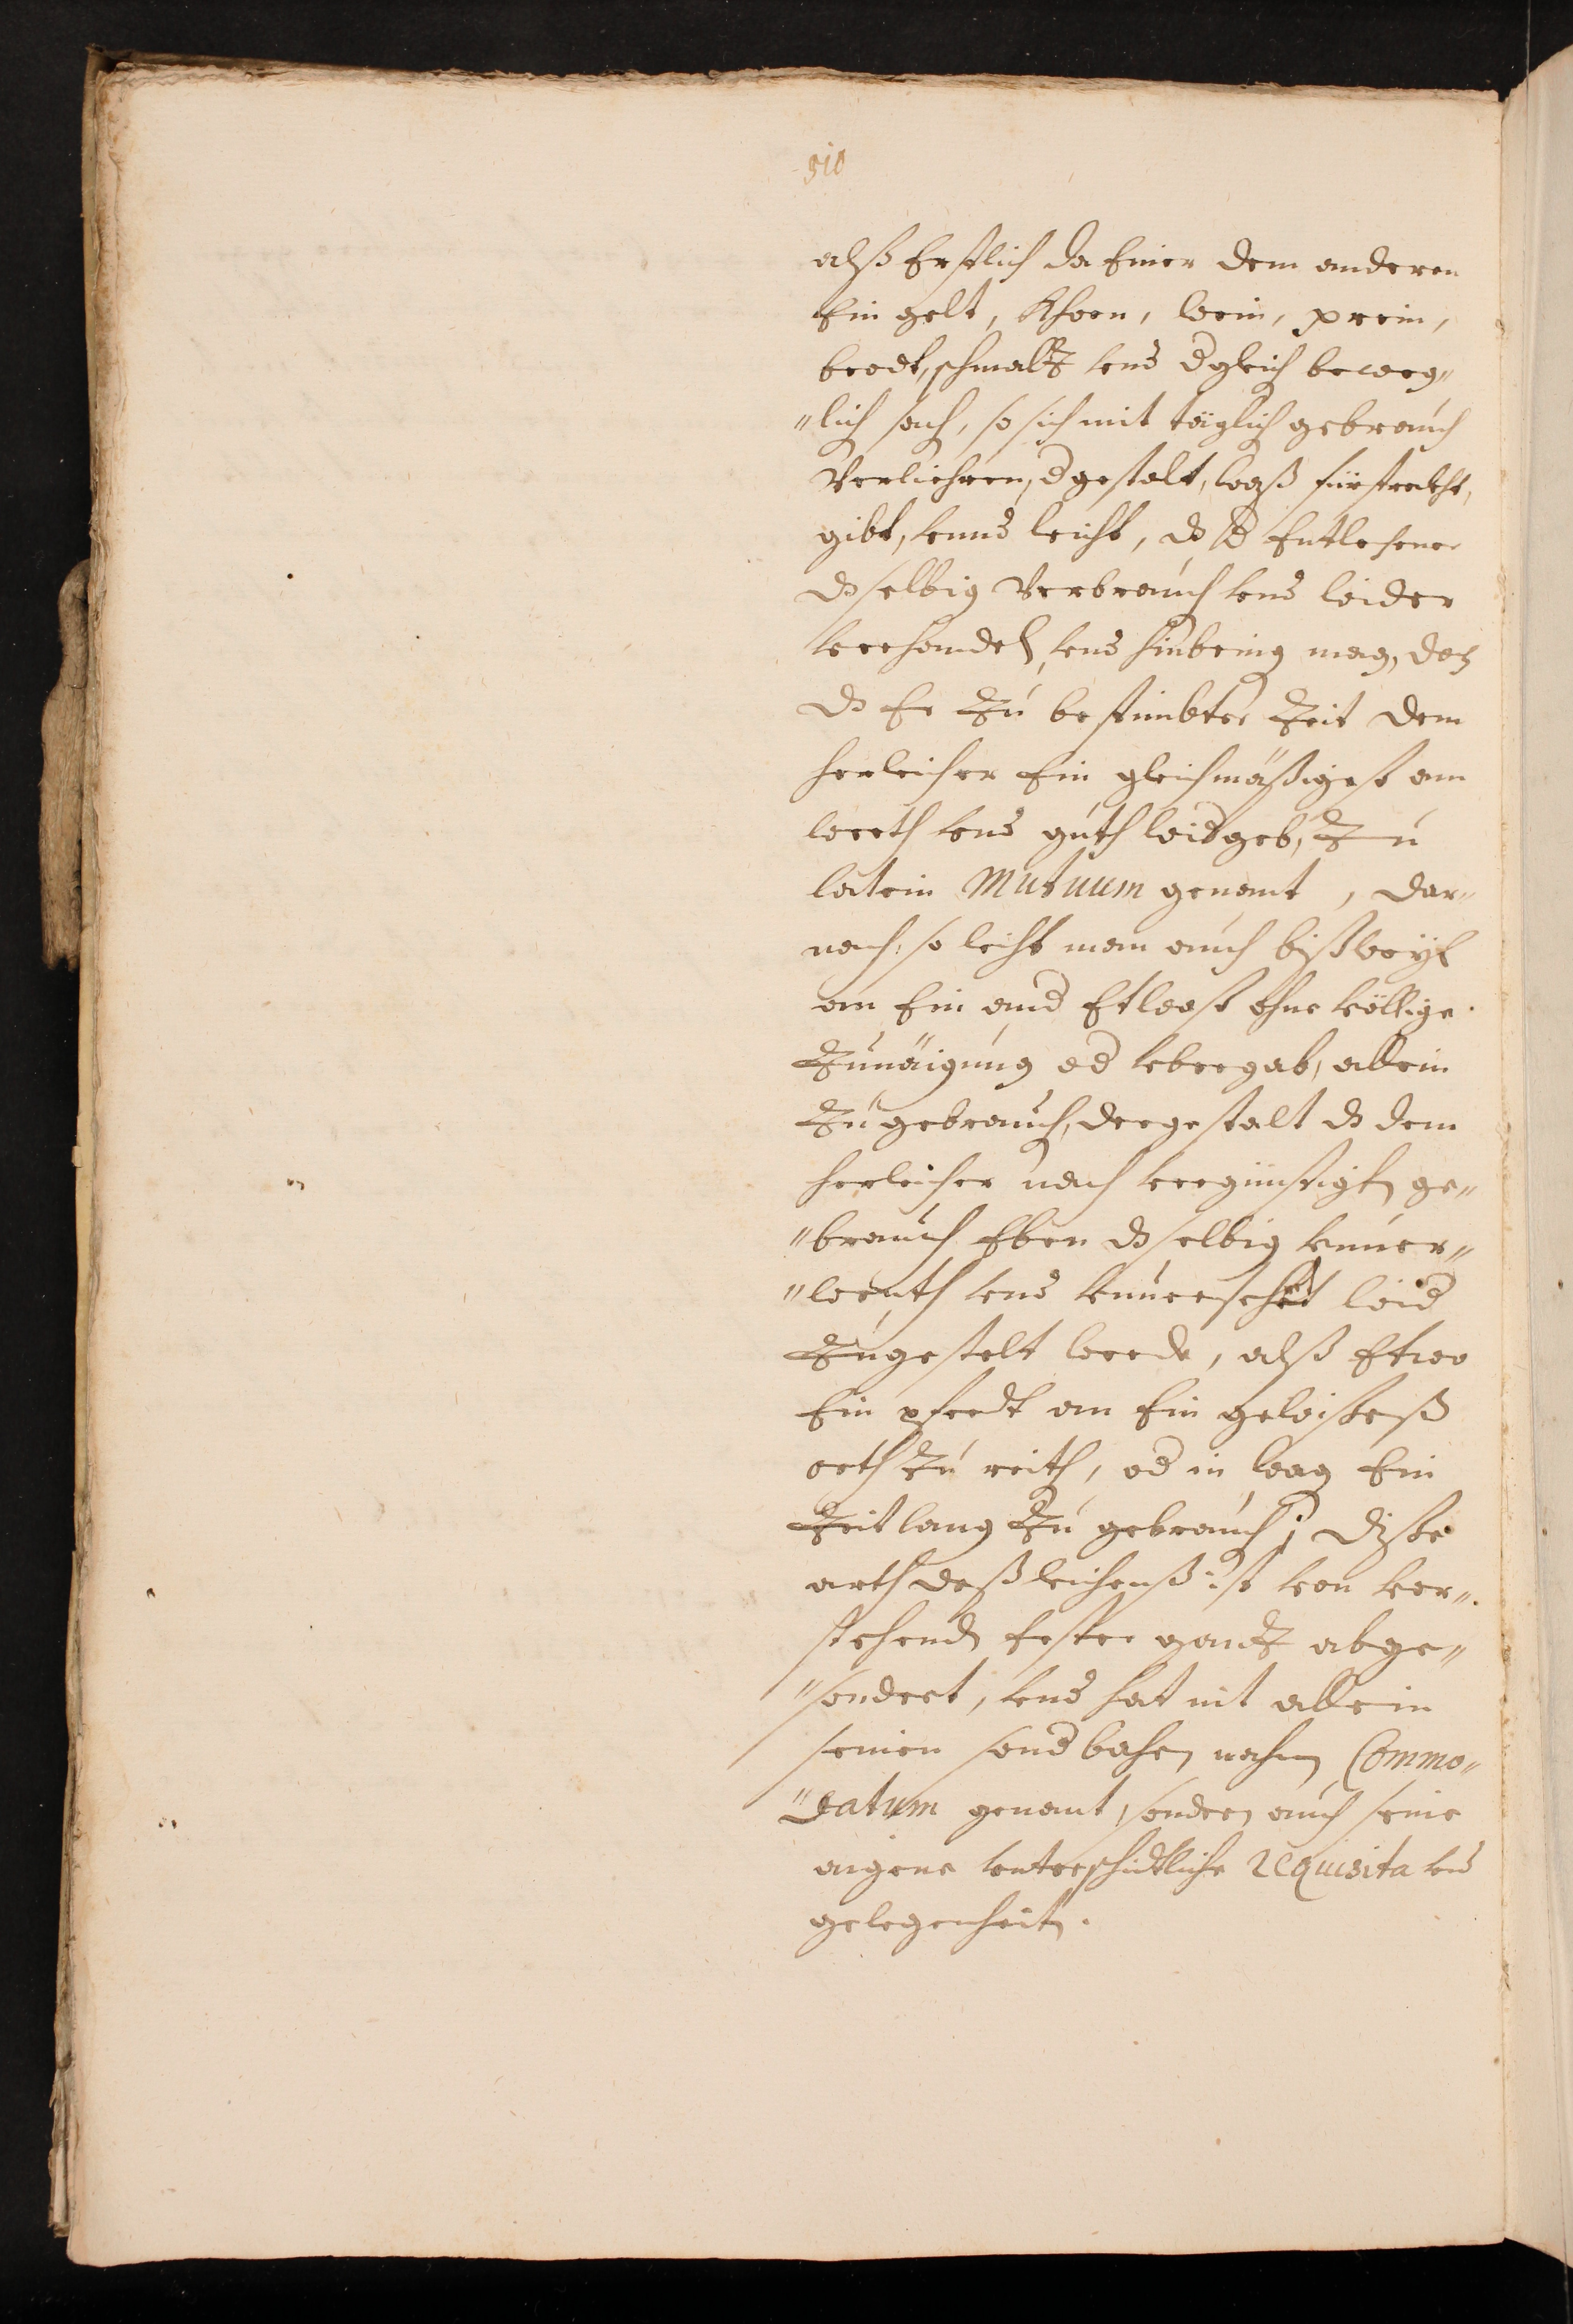 510
alß Erstlich da Einer dem anderen
Ein gelt, Khorn, wein, prein,
brodt, schmaltz vnd dgleich beweg„
„lich sach, so sich mit täglich gebrauch
Verliehren, dgestalt, waß fürstreckht,
gibt, vnnd leicht, dz d Entlehener
dzselbig Verbrauch vnd wider
verhandel, vnd hinbring mag, doch
dz Er Zu bestimbter Zeit dem
herleicher Ein gleichmäßigest am
werth vnd guth widgeb, Zu
latein Mutuum genant, dar„
nach: so leicht man auch bißweÿl
an Ein and Etwast ohne völlige
Zunäigung od vbergab, allein
Zu gebrauch, dergestalt dz dem
herleicher nach vergünstigten ge„
„brauch Eben dzselbig vnuer„
„wenth vnd vnuersehrt wid
Zugestelt werde, alß Etwo
Ein pferdt an Ein gewisseß
orth Zu reith, od in wag Ein
Zeitlang Zu gebrauch; disse
arth deß leichenß ist von vor„
stehend Erster gantz abge„
„sondert, vnd hat nit allein
seinen sond bahren nahmen Commo„
„datum genant, sondern auch seine
aigene vnterschidtliche requisita vnd
gelegenheit.